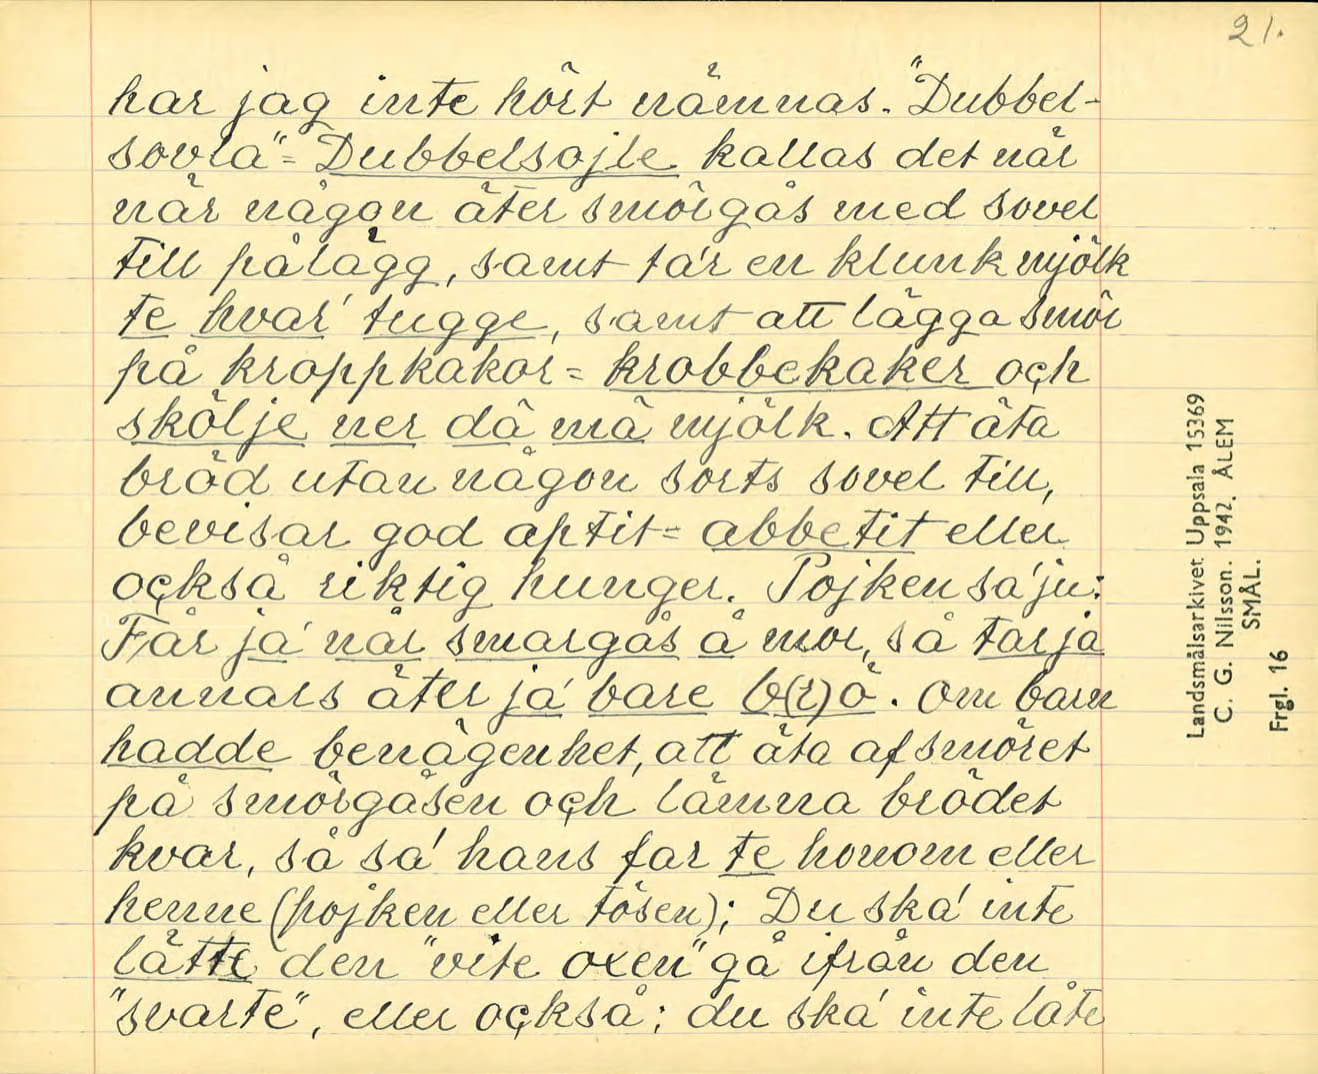 21.
har jag inte hört nämnas. "Dubbel-
sovla" = Dubbelsojle kallas det när
när någon äter smörgås med sovel
till pålägg, samt ta'r en klunk mjölk
te hvar' tugge, samt att lägga smör
på kroppkakor = krobbekaker och
skölje ner då mä mjölk. Att äta
bröd utan någon sorts sovel till,
bevisar god aptit = abbetit eller
också riktig hunger. Pojken sa' ju:
Får ja' når smargås å mor, så tar ja
annars äter ja' bare b(r)ö. Om barn
hadde benägenhet, att äta af smöret
på smörgåsen och lämna brödet
kvar, så sa' hans far te honom eller
henne (pojken eller tösen); Du ska' inte
låtte den "vite oxen" gå ifrån den
"svarte", eller också: du ska' inte låte
Landsmålsarkivet Uppsala 15369
C. G. Nilsson. 1942. ÅLEM
SMÅL.
Frgl. 16